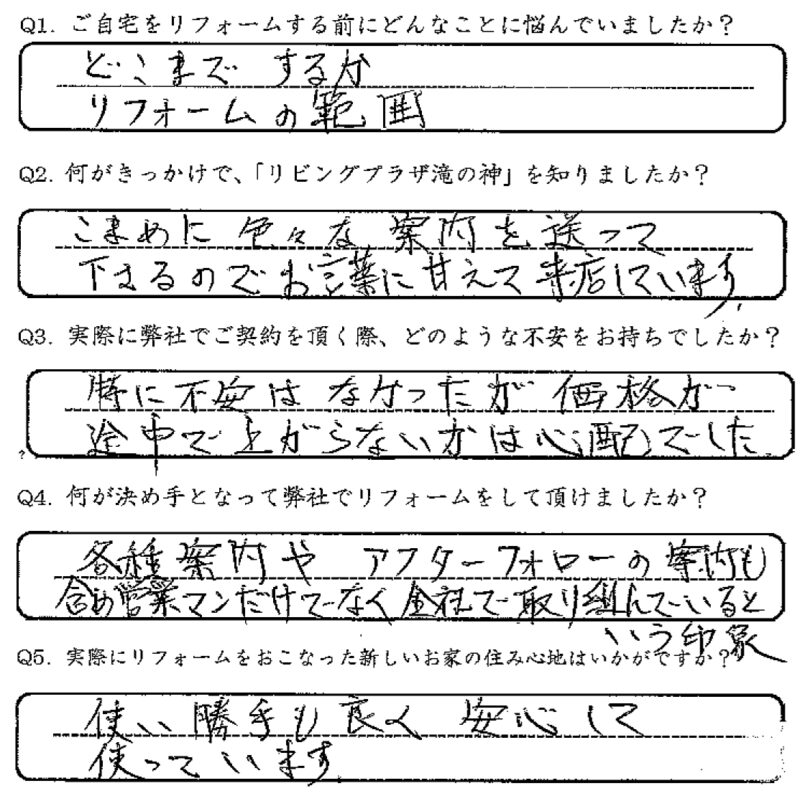 Q1. ご自宅をリフォームする前にどんなことに悩んでいましたか？
どこまで するか
リフォームの範囲
Q2. 何がきっかけで、「リビングプラザ滝の神」を知りましたか？
こまめに 色々な 案内を送って
下さるのでお言葉に甘えて来店しています。
Q3. 実際に弊社でご契約を頂く際、どのような不安をお持ちでしたか？
特に不安はなかったが 価格が
途中で上がらないかは心配でした
Q4. 何が決め手となって弊社でリフォームをして頂けましたか？
各種案内や アフターフォローの案内も
含め営業マンだけでなく全社で取り組んでいると
いう印象
Q5. 実際にリフォームをおこなった新しいお家の住み心地はいかがですか？
使い勝手も良く 安心して
使っています